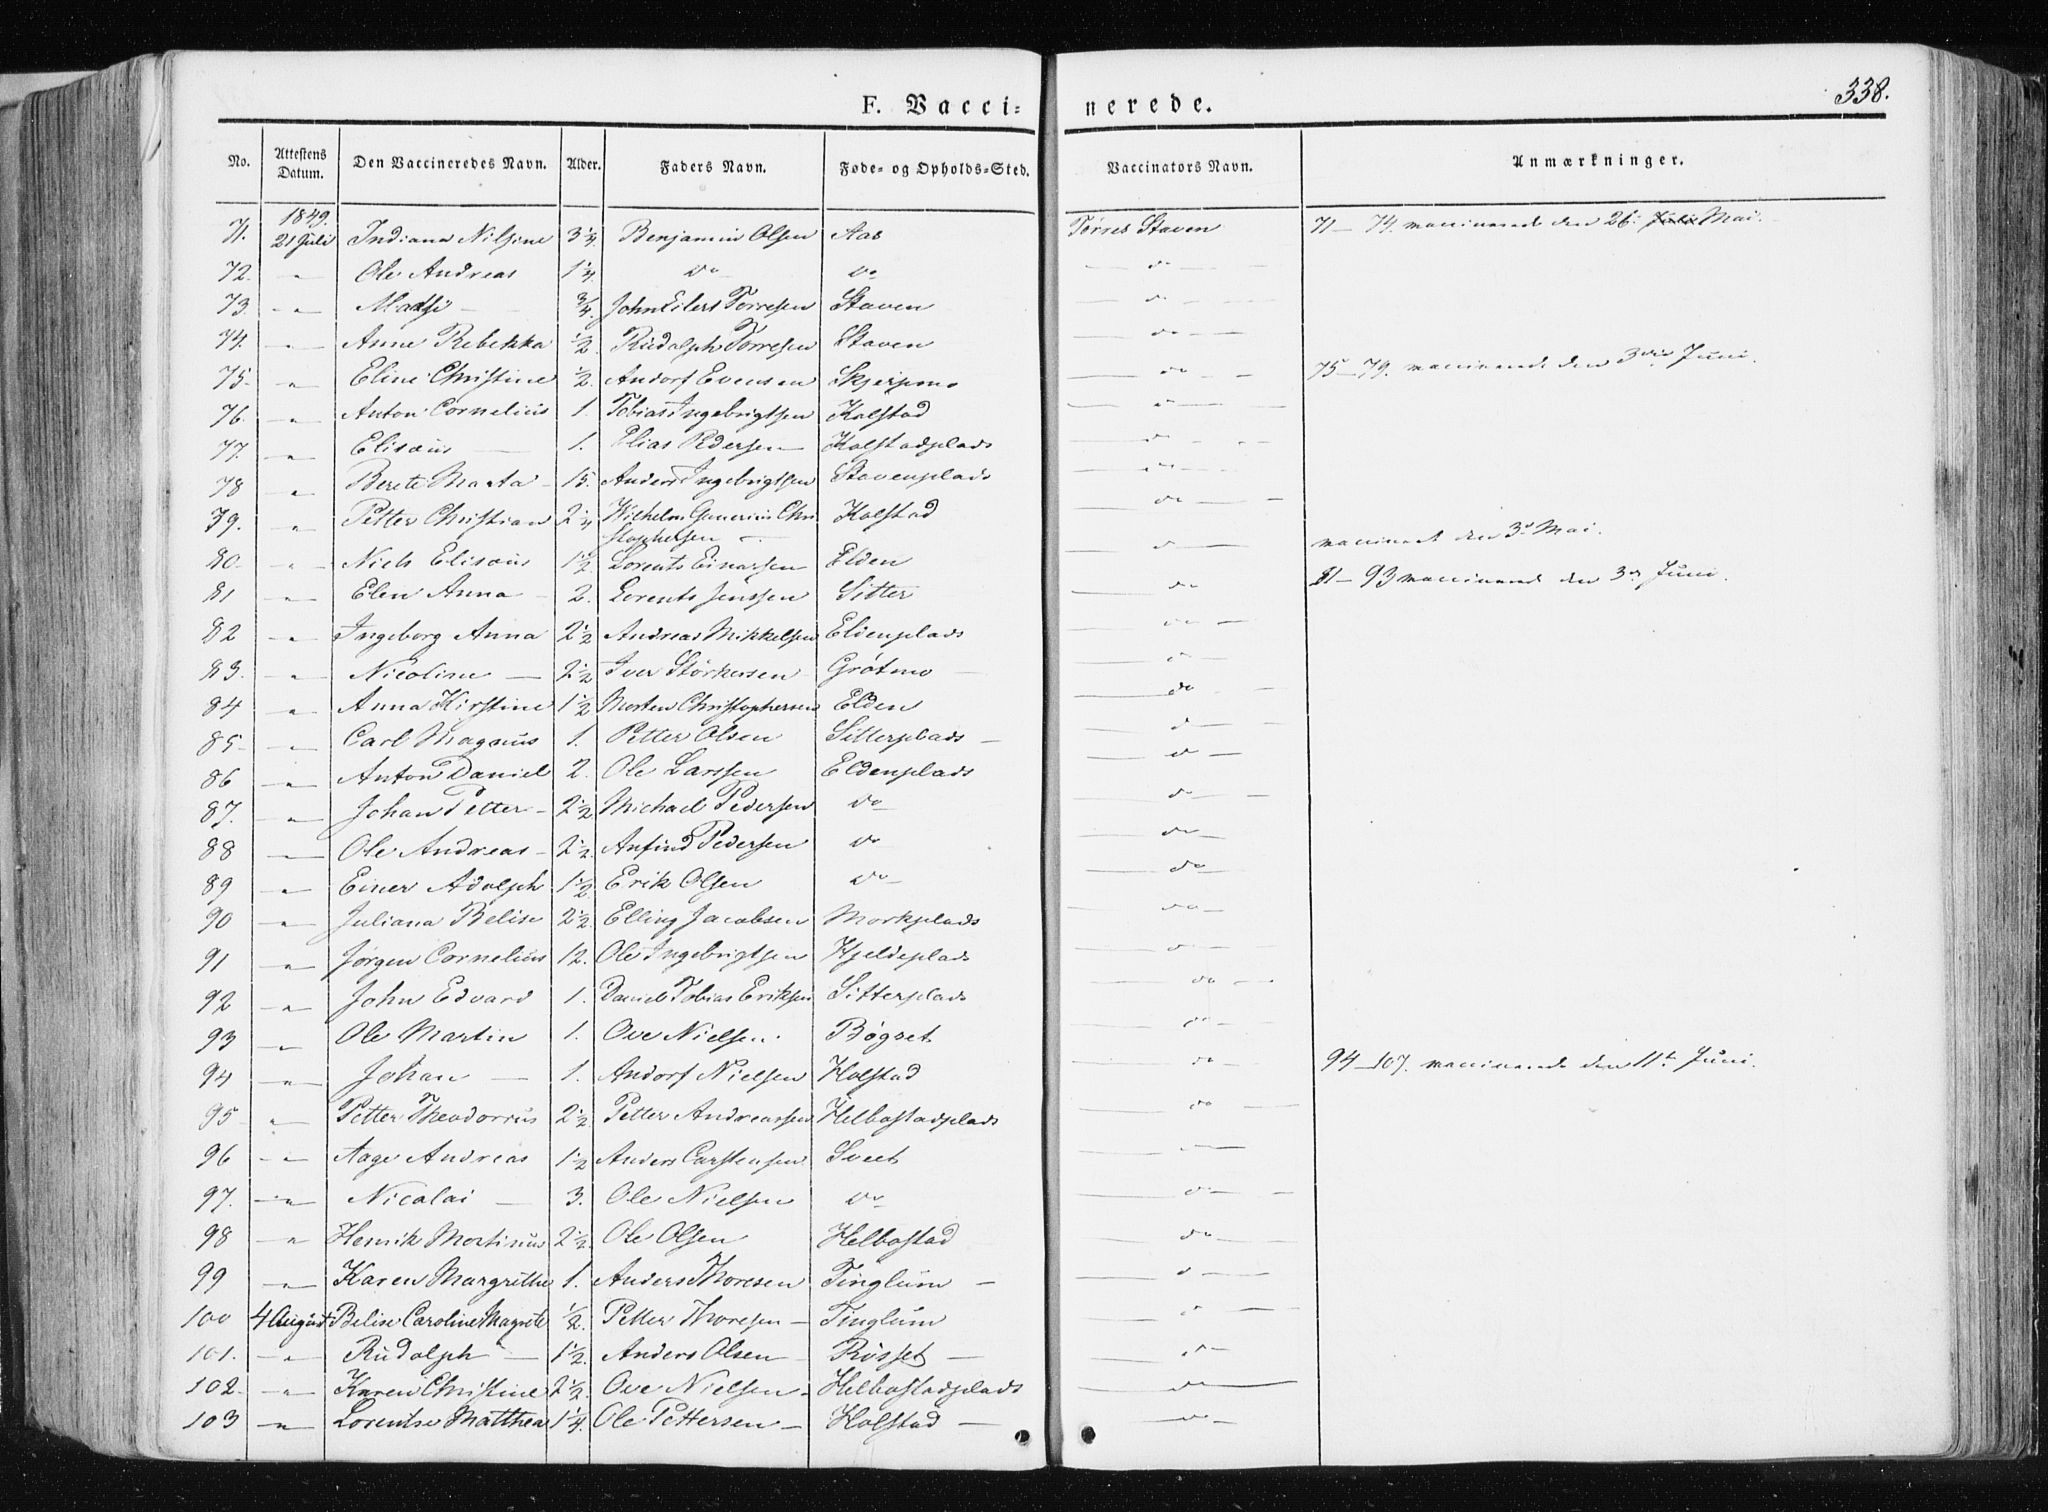 338.
F. Vaccinerede.
No. Attestens Datum. Den Vaccineredes Navn. Alder. Faders Navn. Føde- og Opholds-Sted. Vaccinators Navn. Anmærkninger.
1849.
71. 21 Juli Indiana Nilsine 3 1/4 Benjamin Olsen Aas Tørres Staven 71-74. vaccinerede den 26. Juli Mai.
72. " Ole Andreas 1 1/4 do do do
73. " 3/4 John Eilert Torresen Staven do
74. " Anne Rebekka 1/2 Rudolph Torresen Staven do
75. " Eline Christine 1/2. Andorf Evensen Skjerpmo do 75-79. vaccinerede den 3die Juni.
76. " Anton Cornelius 1. Tobias Ingebrigtsen Kolstad do
77. " Elisæus 1. Elias Pedersen Kolstadplads do
78 " Berete Marta 15. Anders Ingebrigtsen Stavenplads do
79. " Petter Christian 2 1/4 Wilhelm Gunerius Chri Kolstad do
stophersen
80. " Niels Elisæus 1 1/2 Lorents Einarsen Elden do vaccineret den 3d Mai.
81 " Elen Anna 2. Lorents Jenssen Sitter do 81-93 vaccinerede den 3die Juni.
82 " Ingeborg Anna 2 1/2 Andreas Mikkelsen Eldenplads do
83. " Nicoline 2 1/2 Iver Størkersen Grötmo do
84 " Anna Kirstine 1 1/2 Morten Christophersen Elden do
85 " Carl Magnus 1. Petter Olsen Sitterplads do
86 " Anton Daniel 2. Ole Larssen Eldenplads do
87. " Johan Petter 2 1/2 Michael Pedersen do do
88 Ole Andreas 2 1/2. Anfind Pedersen do do
89 " Einer Adolph 1 1/2 Erik Olsen do do
90 " Juliana Belise 2 1/2. Elling Jacobsen Morkplads do
91 " Jørgen Cornelius 12. Ole Ingebrigtsen Hjeldeplads do
92 " John Edvard 1. Daniel Tobias Eriksen Sitterplads do
93 " Ole Martin 1. Ove Nielsen. Bøgset do
94 " Johan 1. Andorf Nielsen Holstad do 94-107. vaccinerede den 11te Juni.
95 " Petter Theodorius 2 1/2 Petter Andreassen Helbostadplads do
96 " Aage Andreas 1 1/2 Anders Carstensen Sveet
97. " Nicolai 3. Ole Nielsen do do
98 " Henrik Mortinus 2 1/2. Ole Olsen Helbostad do
99 " Karen Margrethe 1. Anders Thoresen Tinglum do
100 4 August Belise Caroline Magrete 1/2. Petter Thoresen Tinglum do
101. " Rudolph 1 1/2. Anders Olsen Rösset do
102. " Karen Christine 2 1/2. Ove Nielsen Helbostadplads do
103 " Lorentse Matthea 1 1/4. Ole Pettersen Holstad do